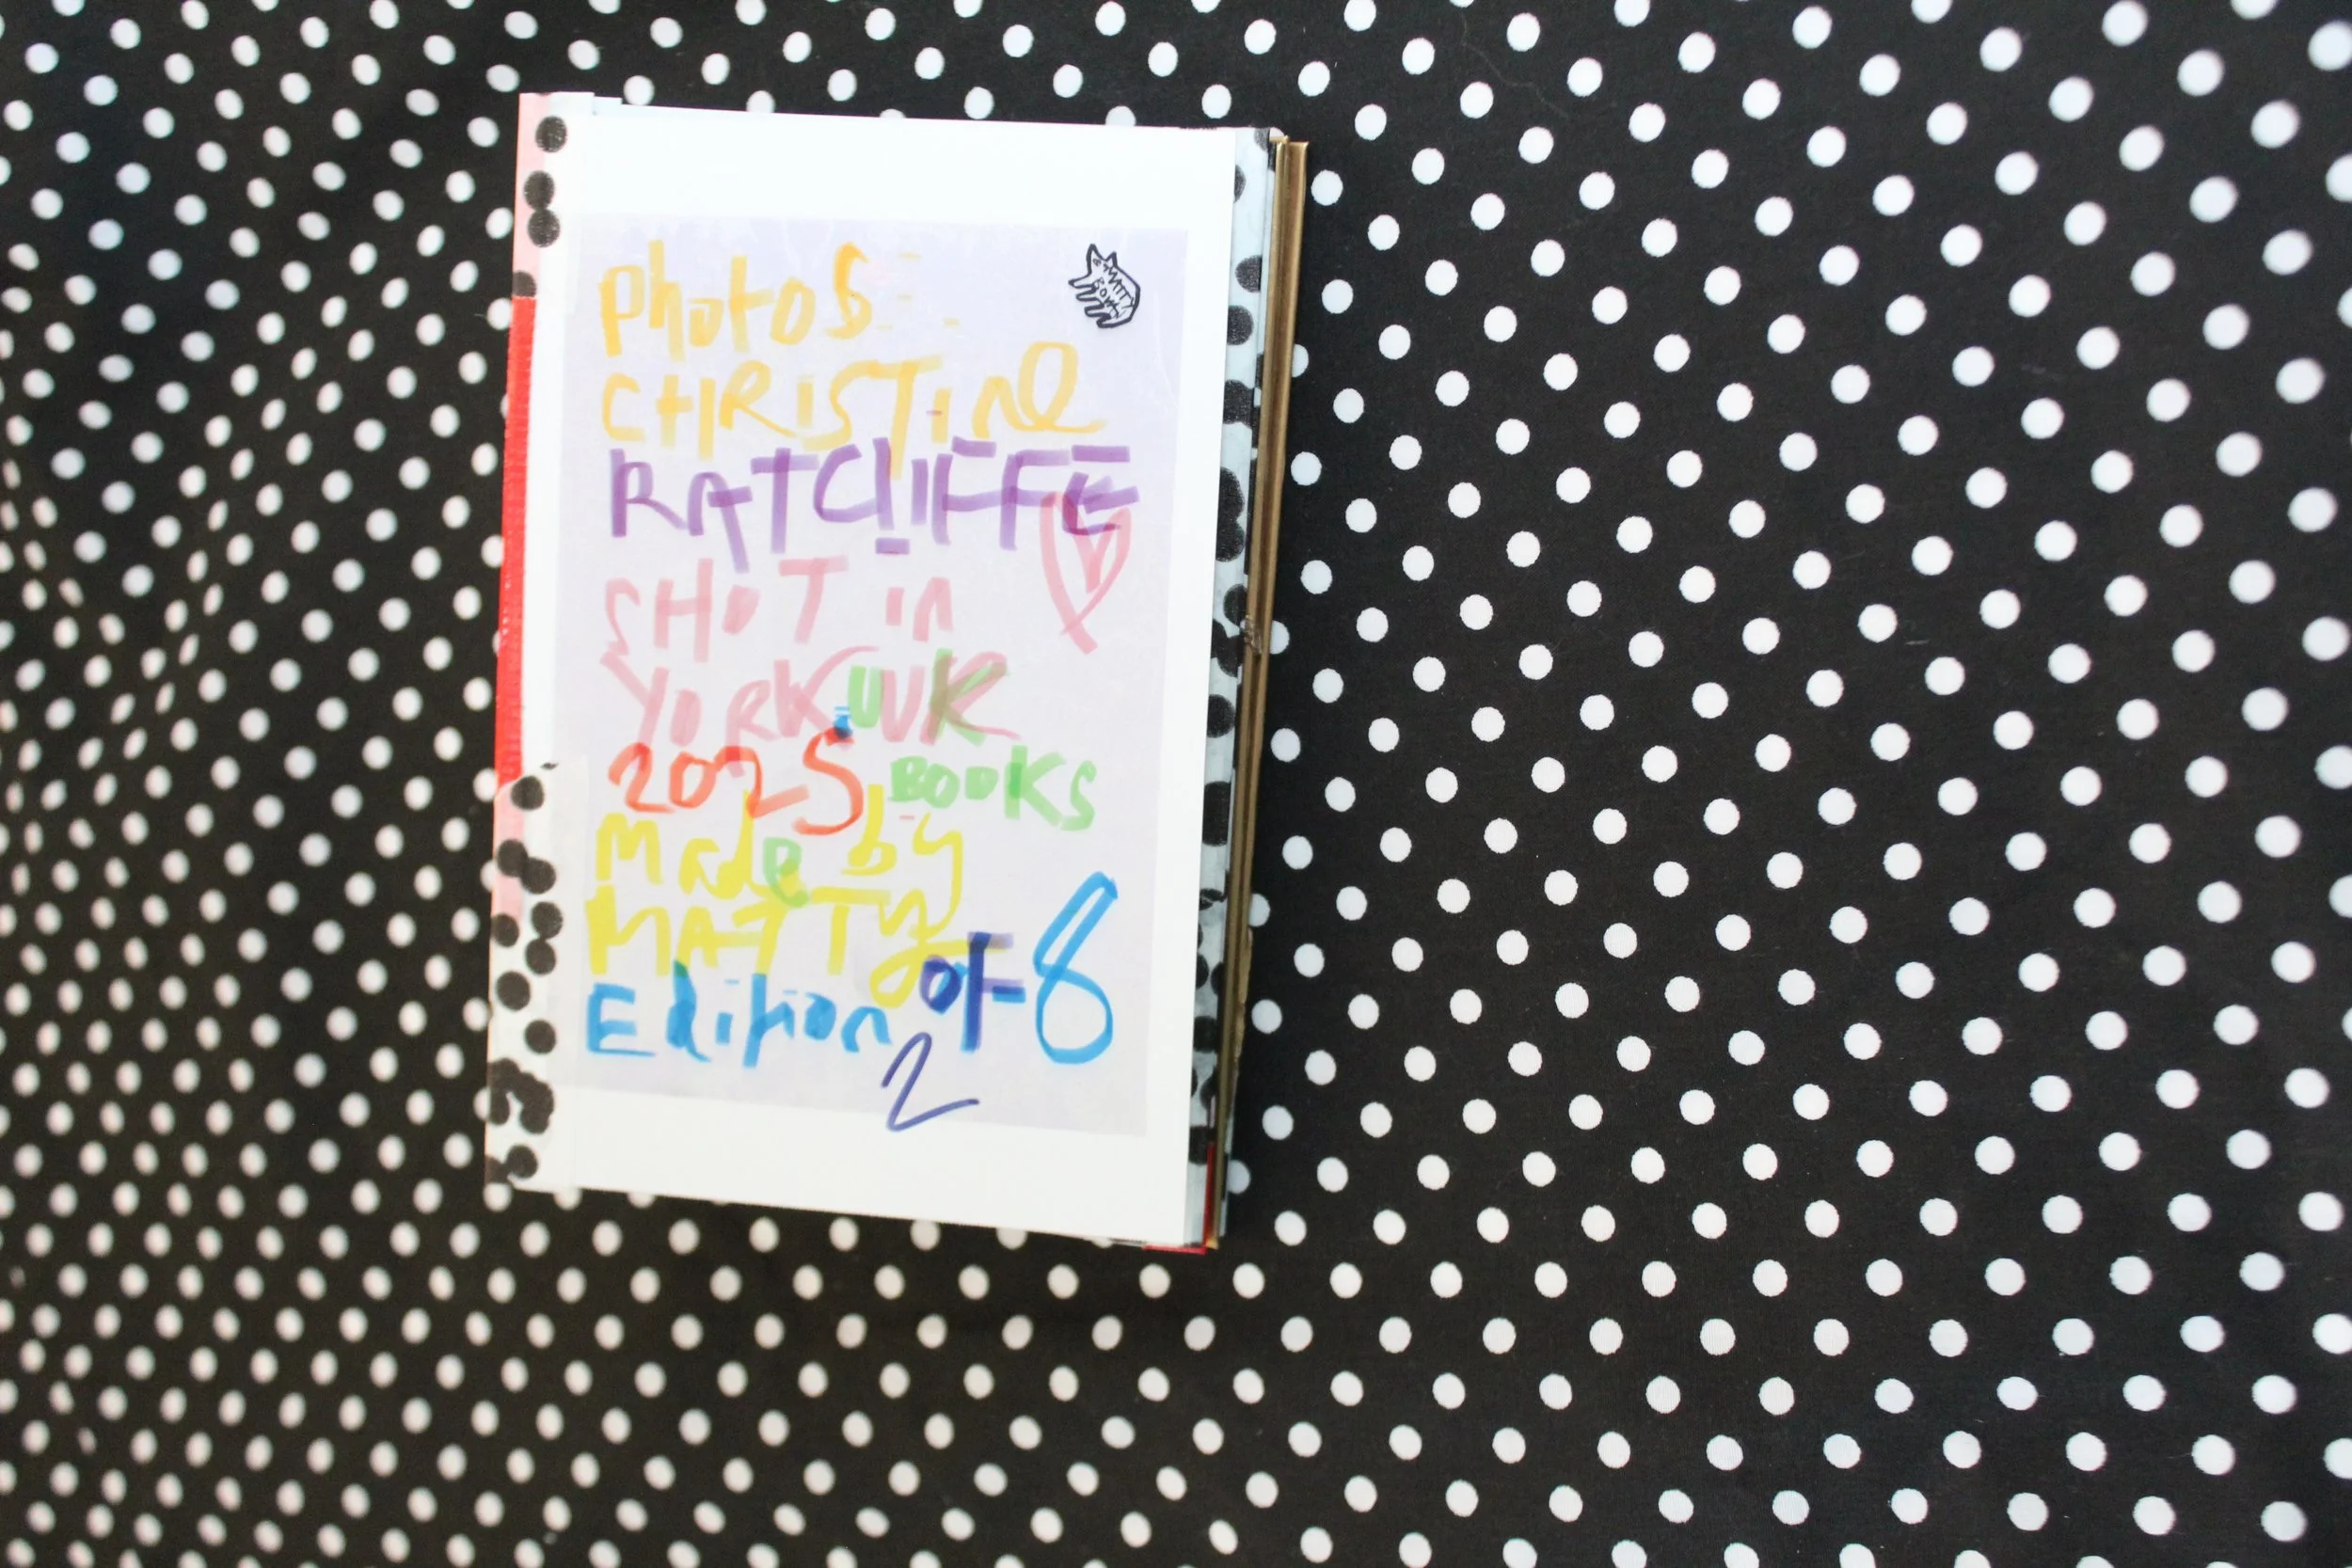 Photos
CHRISTINE
RATCLIFFE
SHOT in
YORK UK UK
2025 BOOKS
Made by
MATTY
Edition of 8
2
MATTY
BOVAN